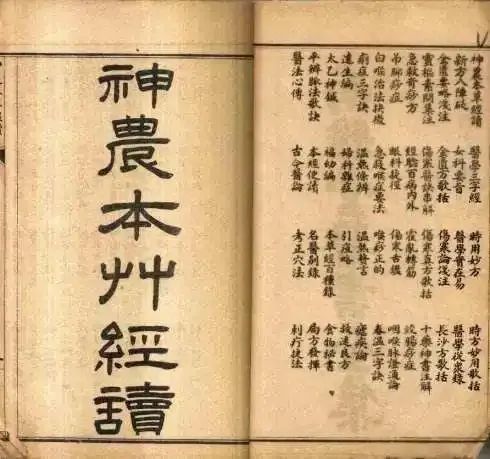 神農本草經讀 醫學三字經 時用妙方 時方妙用歌括
新方八陣砭 女科要旨 醫學實在易 醫學從衆錄
金匱要略淺注 金匱方歌括 傷寒論淺注 長沙方歌括
靈樞素問集注 傷寒醫訣串解 傷寒真方歌括 十藥神書注解
急救奇痧方 經驗百病內外 霍亂轉筋 絞腸痧症
弔腳痧症 眼科捷徑 傷寒舌鑑 咽喉脈證通論
白喉治法抉微 急救喉症要法 喉痧正的 春溫三字訣
痢症三字訣 溫熱條辨 溫熱贅言 瘧疾論
達生編 婦科雜症 引痘略 救迷良方
太乙神鍼 福幼編 本草經百種錄 食物秘書
平辨脈法歌訣 本經便讀 名醫別錄 局方發揮
醫法心傳 古今醫論 考正穴法 刺疔捷法
神農本艸經讀